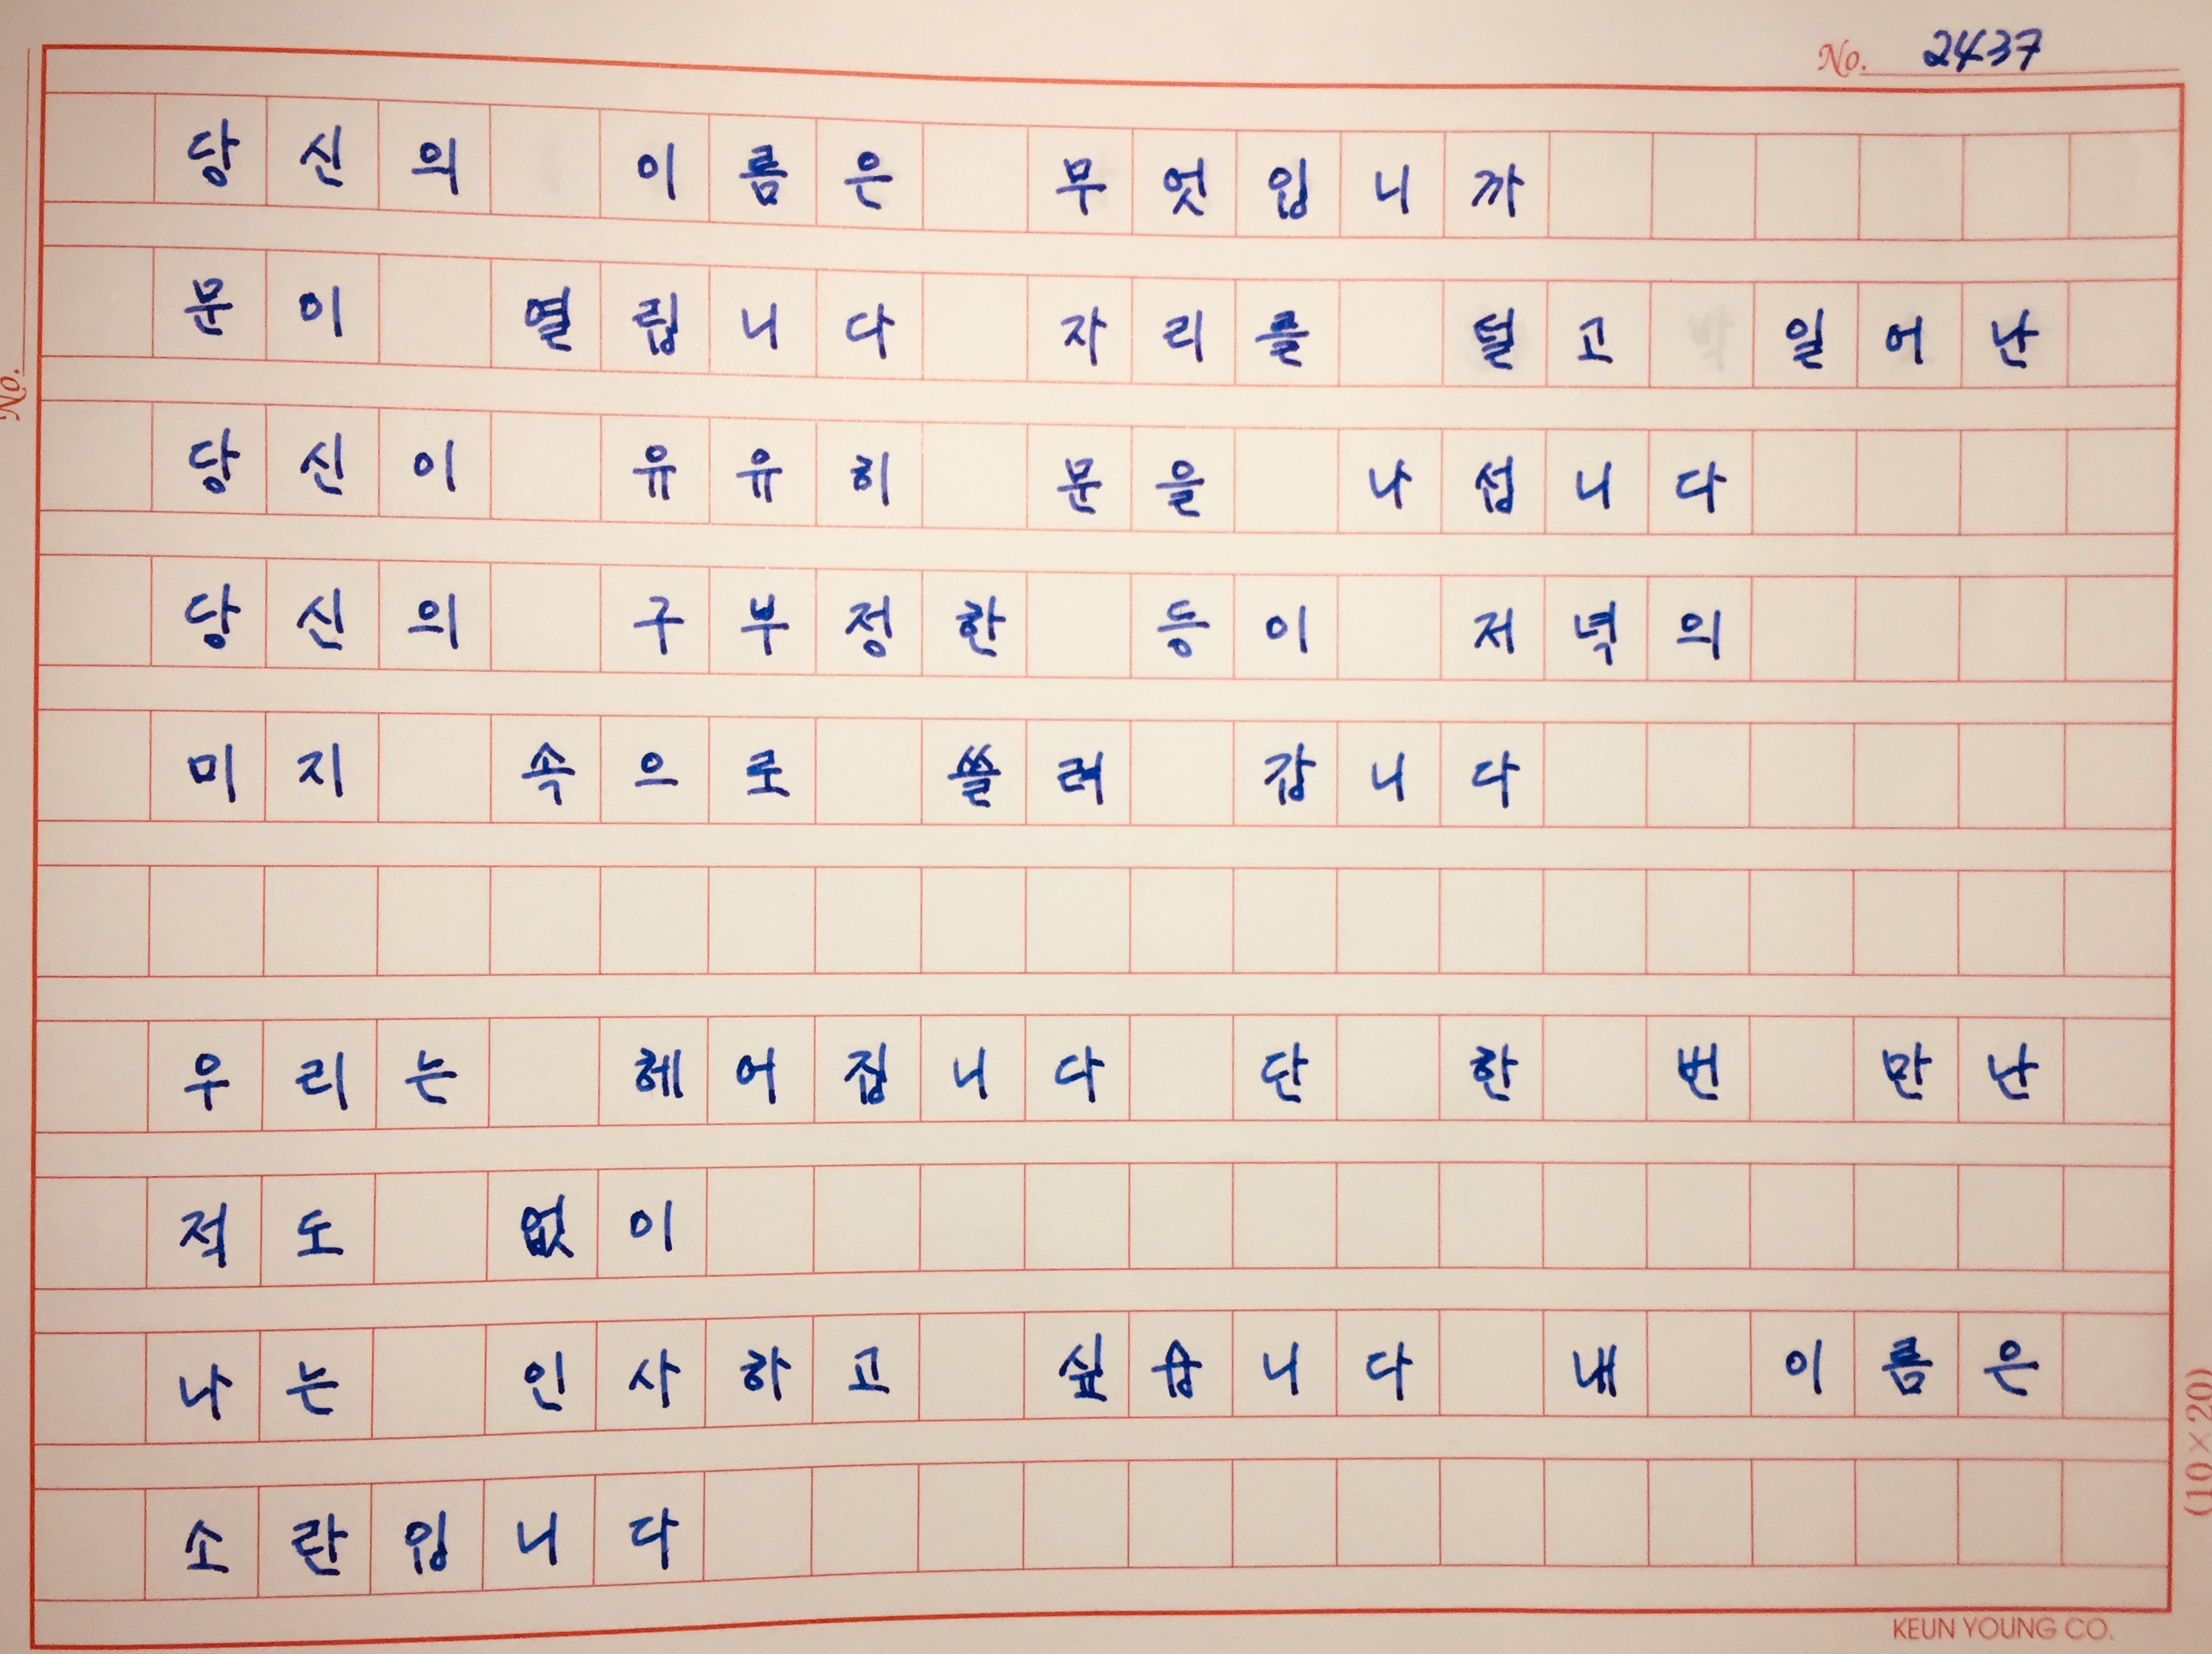 No. 2437
당신의 이름은 무엇입니까
문이 열립니다 자리를 털고 일어난
당신이 유유히 문을 나섭니다
당신의 구부정한 등이 저녁의
미지 속으로 쓸려 갑니다
우리는 헤어집니다 단 한 번 만난
적도 없이
나는 인사하고 싶습니다 내 이름은
소란입니다
No.
(10×20)
KEUN YOUNG CO.